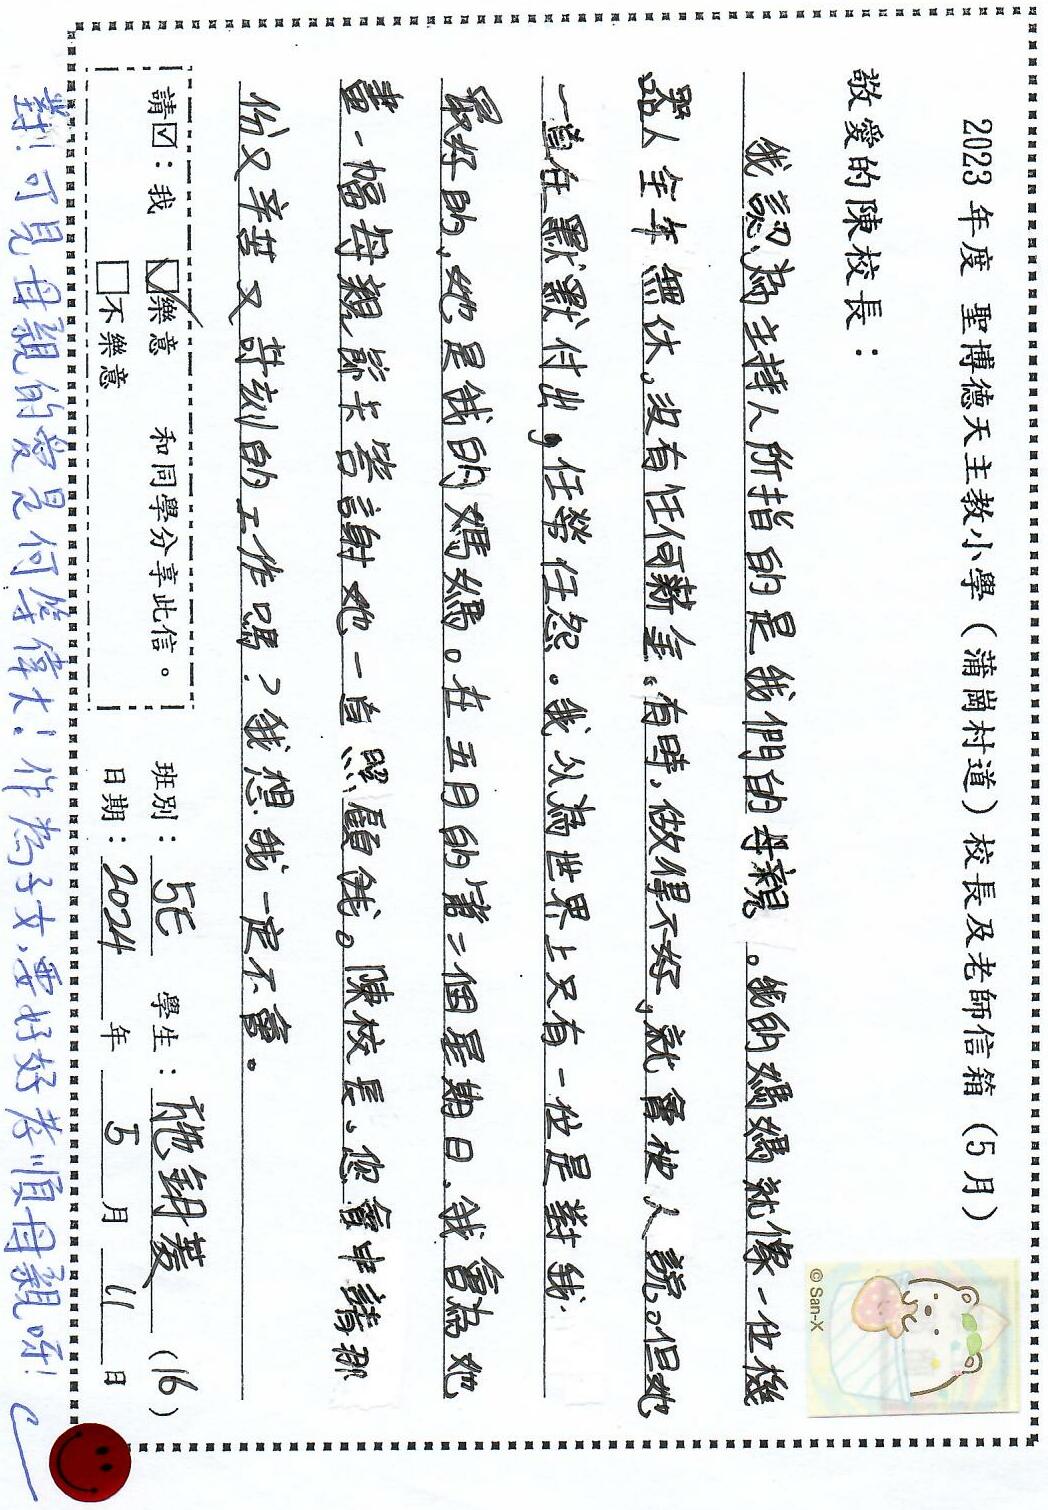 2023 年度 聖博德天主教小學（蒲崗村道）校長及老師信箱（5月）
敬愛的陳校長：
我認為主持人所指的是我們的母親。我的媽媽就像一位機
器人全年無休，沒有任何薪金。有時，做得不好，就會被人說。但她
一直在默默付出，任勞任怨。我认為世界上只有一位是對我
最好的，她是我的媽媽。在五月的第二個星期日，我會為她
畫一幅母親節卡答謝她一直照顧我。陳校長，您會申請那
份又辛苦又苛刻的工作嗎？我想我一定不會。
請☑：我 ☑樂意 和同學分享此信。
□不樂意
班別：5E 學生：施鈅菱 (16)
日期：2024 年 5 月 11 日
對！可見母親的愛是何等偉大！作為子女，要好好孝順母親呀！
© San-X